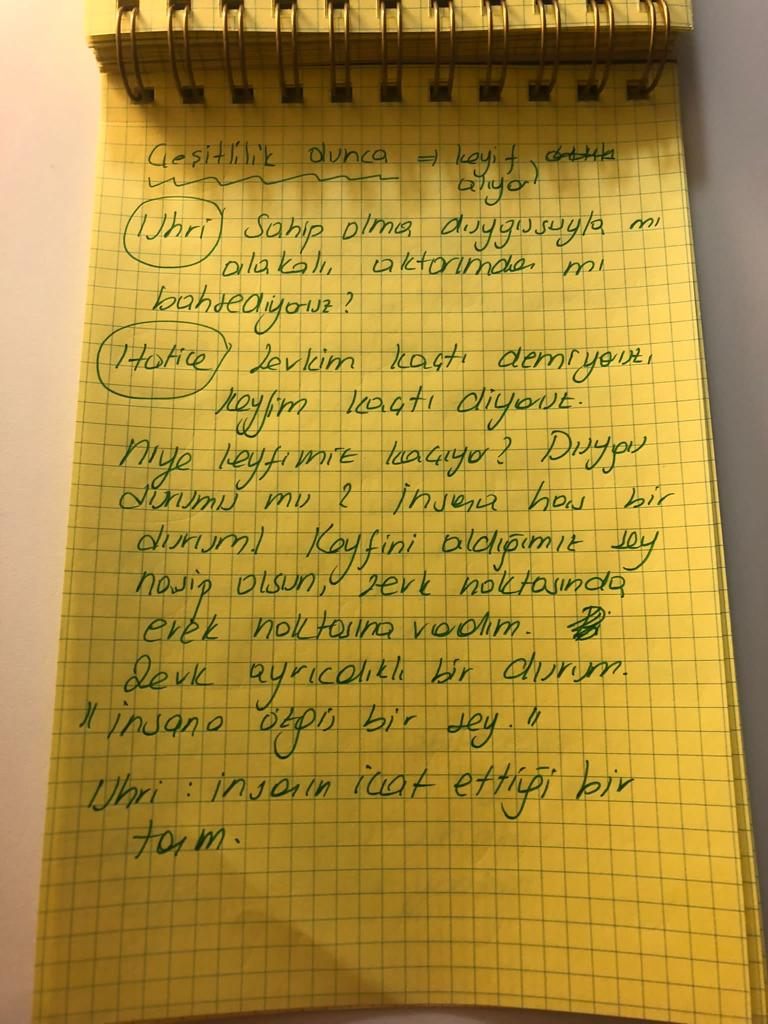 Çeşitlilik olunca ⇒ keyif
alıyor)
Uhri) Sahip olma duygusuyla mı
alakalı, aktarımdan mı
bahsediyoruz?
Hatice) Zevkim kaçtı demiyoruz,
keyfim kaçtı diyoruz.
Niye keyfimiz kaçıyor? Duygu
durumu mu? insana has bir
durum! Keyfini aldığımız şey
nasip olsun, zevk noktasında
erek noktasına vadım.
Zevk ayrıcalıklı bir durum.
"insana özgü bir şey."
Uhri : insanın icat ettiği bir